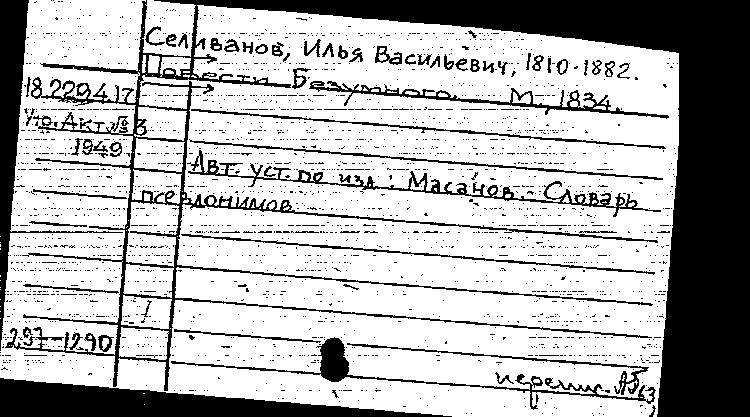 Селиванов, Илья Васильевич, 1810-1882.
Повести Безумного. М., 1834.
18.229.4.17
Утр. Акт №3
1949
Авт. уст. по изд.: Масанов. - Словарь
псевдонимов
297-1290
перепис.